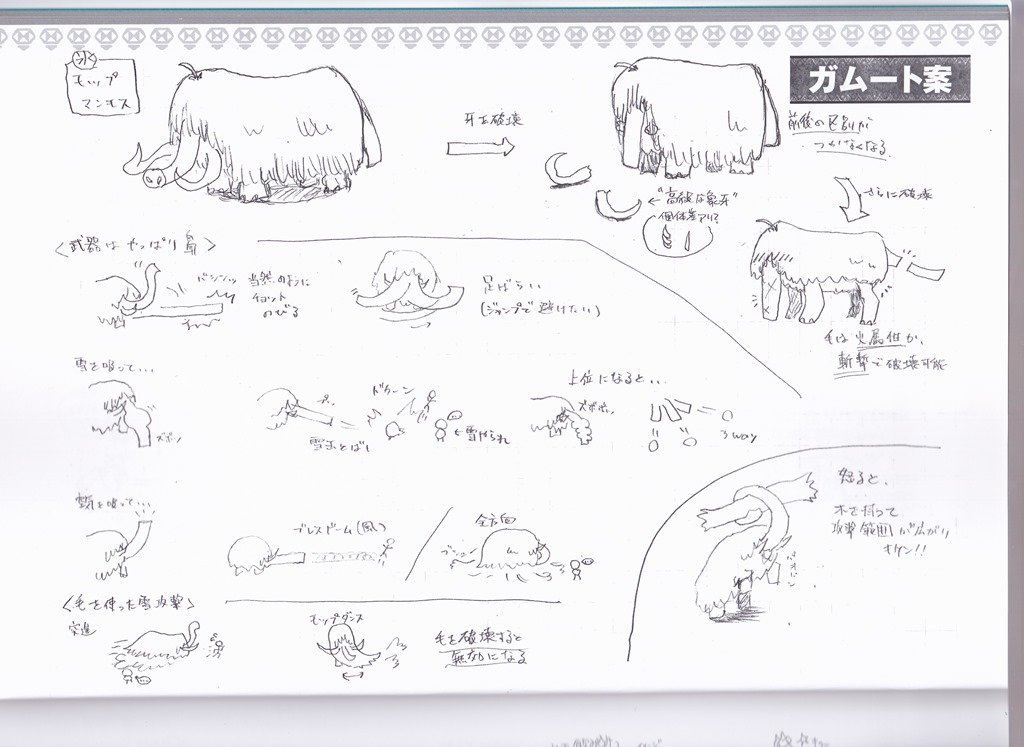 ガムート案
氷
モップ
マンモス
牙を破壊
前後の区別が
つかなくなる
←"高級な象牙"
個体差アリ?
さらに破壊
毛は火属性か、
斬撃で破壊可能
<武器はやっぱり鼻>
バシンッ
当然のように
チョット
のびる
足ばらい
(ジャンプで避けたい)
雪を吸って...
ズボッ
雪玉とばし
ドカーン
←雪やられ
上位になると...
ズボボッ
3way
吸って...
ブレスドーム(風)
全方向
怒ると、
木を持って
攻撃範囲が広がり
キケン!!
<毛を使った雪攻撃>
突進
モップダンス
毛を破壊すると
無効になる